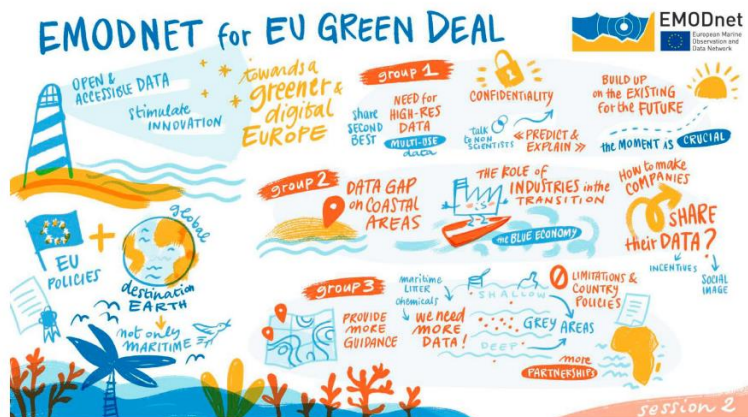 EMODNET for EU GREEN DEAL
EMODnet
European Marine
Observation and
Data Network
OPEN &
ACCESSIBLE DATA
stimulate
INNOVATION
towards a
greener &
digital
EUROPE
group 1
share
SECOND
BEST
NEED for
HIGH-RES
DATA
MULTI-USE
data
CONFIDENTIALITY
Talk
to NON
SCIENTISTS
« PREDICT &
EXPLAIN »
BUILD UP
on the EXISTING
for the FUTURE
the MOMENT is CRUCIAL
group 2
DATA GAP
on COASTAL
AREAS
THE ROLE of
INDUSTRIES in the
TRANSITION
the BLUE ECONOMY
HOW to make
COMPANIES
SHARE
their DATA?
INCENTIVES
SOCIAL
IMAGE
EU
POLICIES
+
global
destination
EARTH
not only
MARITIME
group 3
PROVIDE
MORE
GUIDANCE
maritime
LITTER
chemicals
we NEED
MORE
DATA!
SHALLOW
DEEP
GREY AREAS
LIMITATIONS &
COUNTRY
POLICIES
more
PARTNERSHIPS
session 2